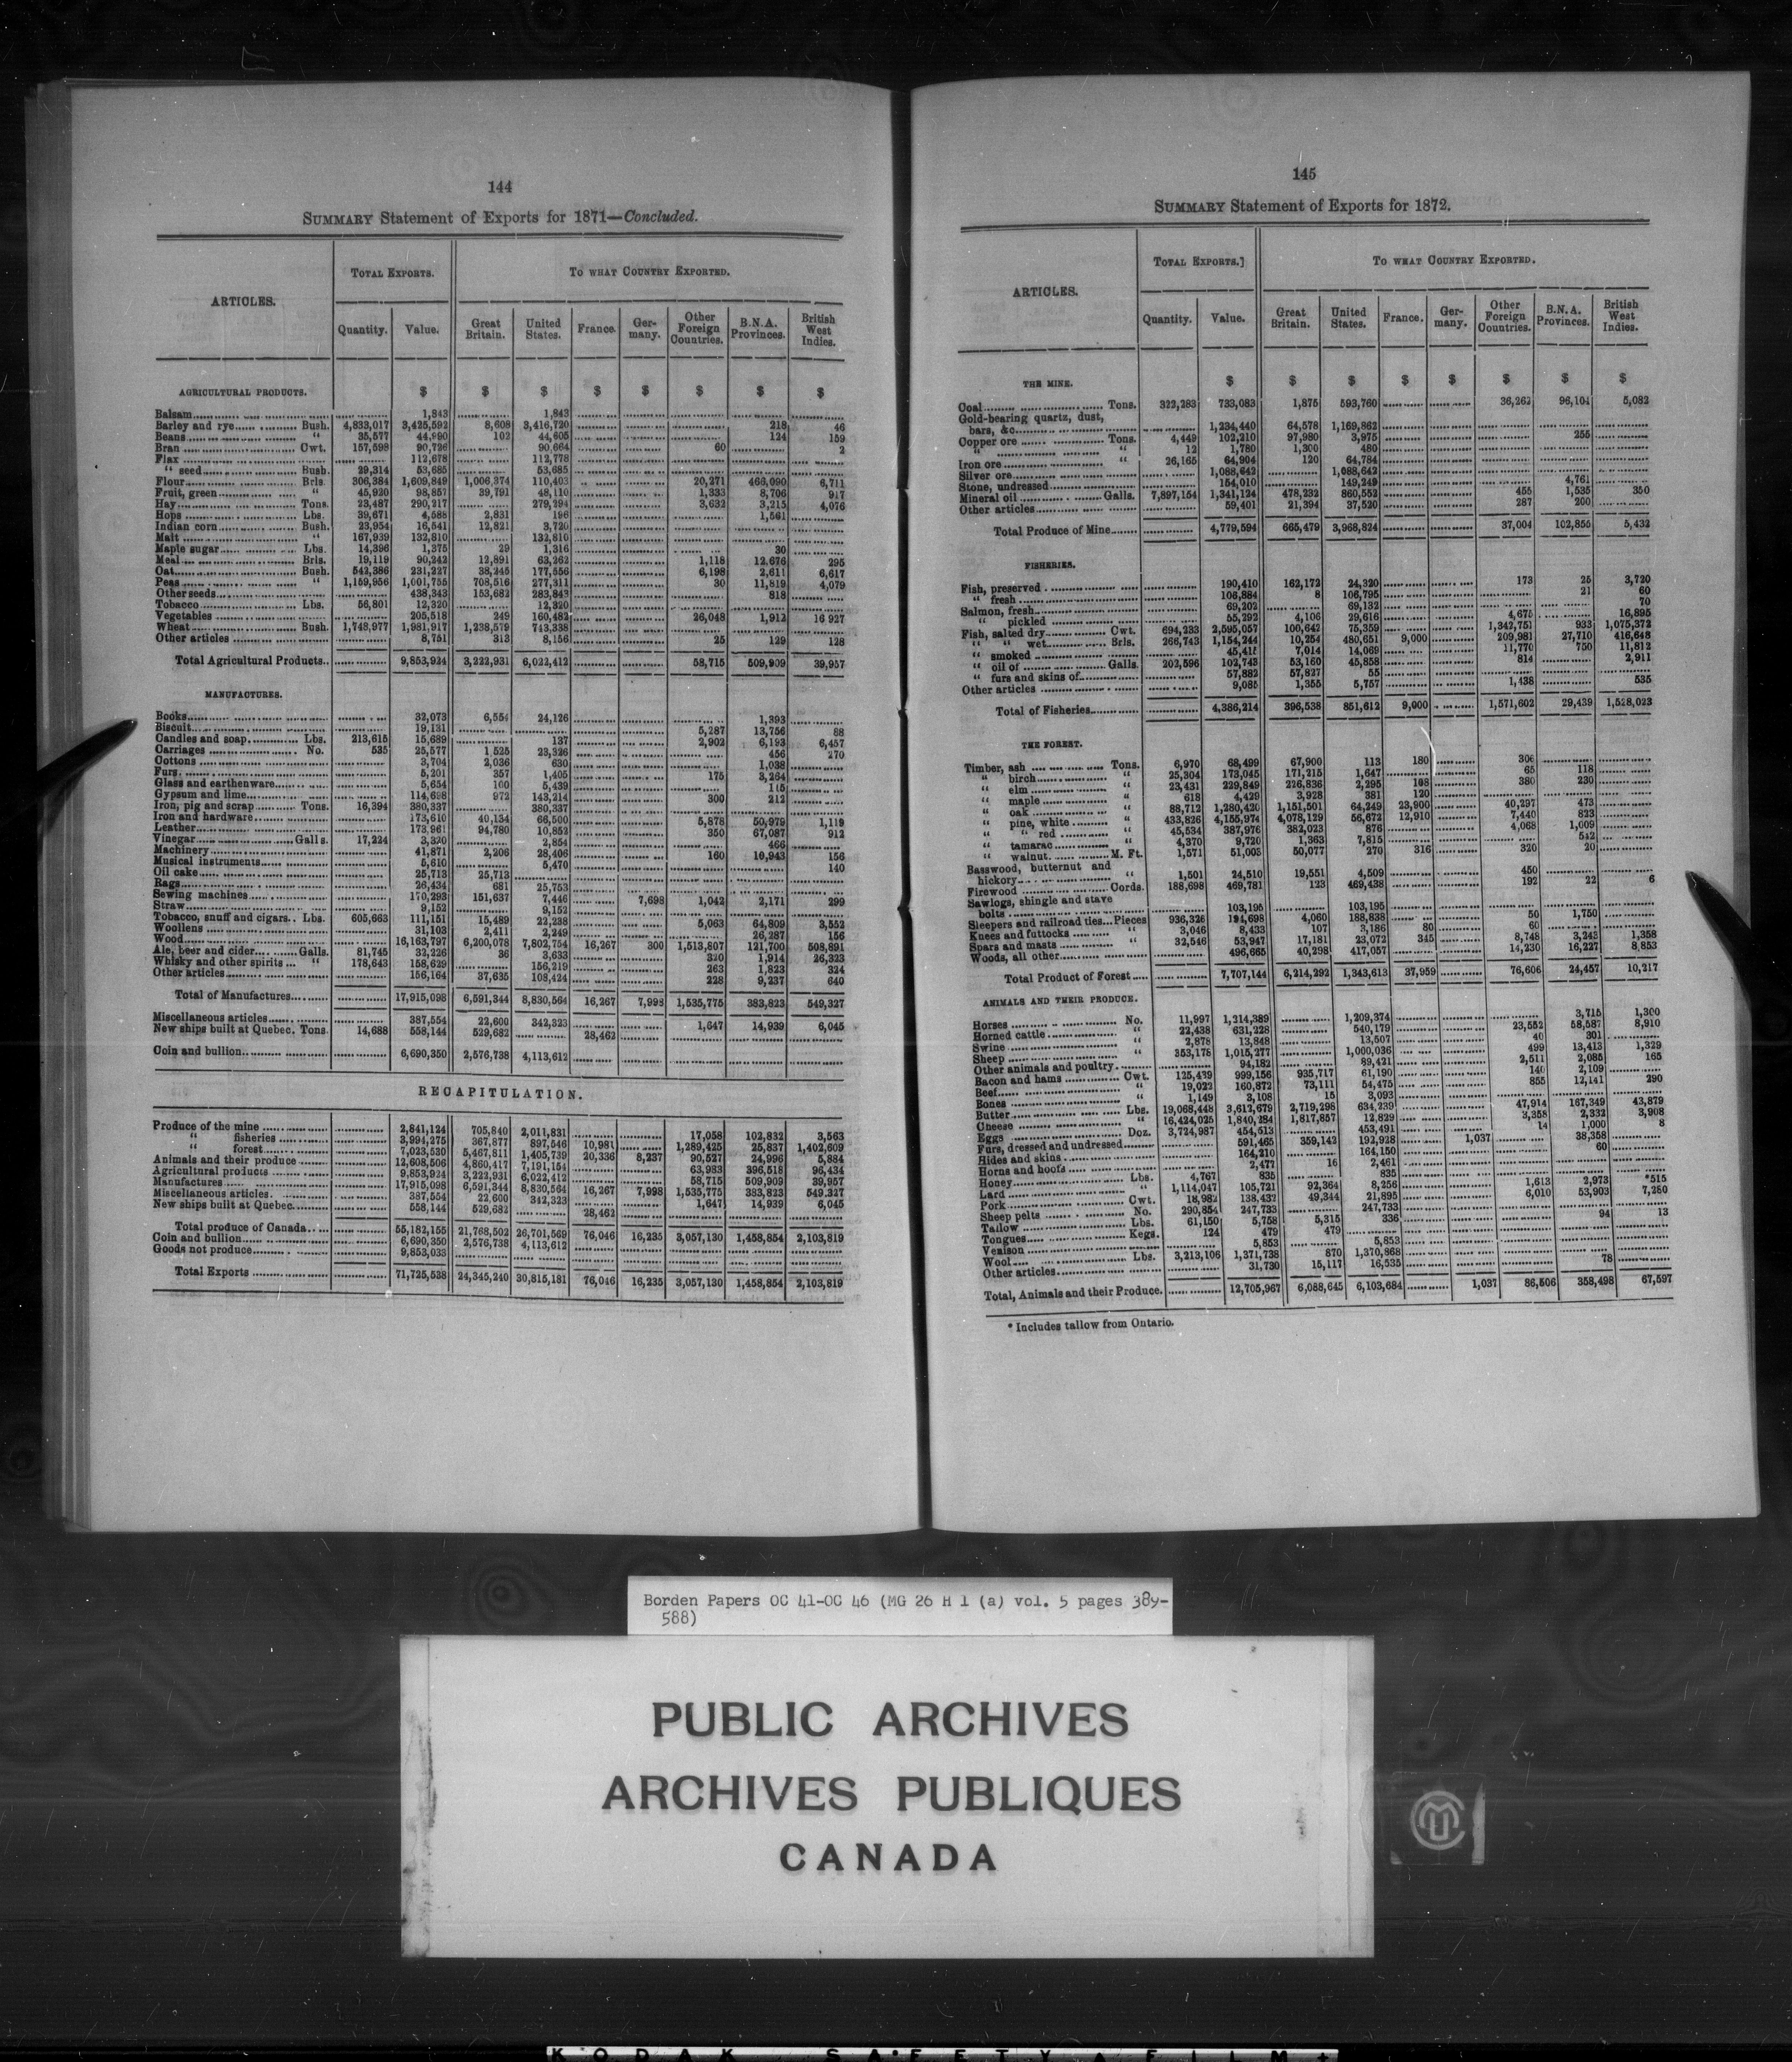 144
SUMMARY Statement of Exports for 1871—Concluded.
ARTICLES.
TOTAL EXPORTS.
TO WHAT COUNTRY EXPORTED.
Quantity. Value. Great Britain. United States. France. Germany. Other Foreign Countries. B.N.A. Provinces. British West Indies.
AGRICULTURAL PRODUCTS. $ $ $ $ $ $ $ $
Balsam 1,843 1,843
Barley and rye Bush. 4,833,017 3,425,592 8,608 3,416,720 218 46
Beans " 35,577 44,990 102 44,605 124 159
Bran Cwt. 157,598 90,726 90,664 60 2
Flax 112,678 112,778
" seed Bush. 29,314 53,685 53,685
Flour Brls. 306,384 1,609,849 1,006,374 110,403 20,271 466,090 6,711
Fruit, green " 45,920 98,857 39,791 48,110 1,333 8,706 917
Hay Tons. 23,487 290,217 279,294 3,632 3,215 4,076
Hops Lbs. 39,671 4,588 2,831 196 1,561
Indian corn Bush. 23,954 16,541 12,821 3,720
Malt " 167,939 132,810 132,810
Maple sugar Lbs. 14,396 1,375 29 1,316 30
Meal Brls. 19,119 90,242 12,891 63,262 1,118 12,676 295
Oat Bush. 542,386 231,227 38,245 177,556 6,198 2,611 6,617
Peas " 1,159,956 1,001,755 708,516 277,311 30 11,819 4,079
Other seeds 438,343 153,682 283,843 818
Tobacco Lbs. 56,801 12,320 12,320
Vegetables 205,518 249 160,482 26,048 1,912 16 927
Wheat Bush. 1,748,977 1,981,917 1,238,579 743,338
Other articles 8,751 313 8,156 25 129 128
Total Agricultural Products.. 9,853,924 3,222,931 6,022,412 58,715 509,909 39,957
MANUFACTURES.
Books 32,073 6,554 24,126 1,393
Biscuit 19,131 5,287 13,756 88
Candles and soap Lbs. 213,615 15,689 137 2,902 6,193 6,457
Carriages No. 535 25,577 1,525 23,326 456 270
Cottons 3,704 2,036 630 1,038
Furs 5,201 357 1,405 175 3,264
Glass and earthenware 5,654 100 5,439 115
Gypsum and lime 114,698 972 143,214 300 212
Iron, pig and scrap Tons. 16,394 380,337 380,337
Iron and hardware 173,610 40,134 66,500 5,878 50,979 1,119
Leather 173,961 94,780 10,852 350 67,087 912
Vinegar Galls. 17,224 3,320 2,854 466
Machinery 41,871 2,206 28,406 160 10,943 156
Musical instruments 5,610 5,470 140
Oil cake 25,713 25,713
Rags 26,434 681 25,753
Sewing machines 170,293 151,637 7,446 7,698 1,042 2,171 299
Straw 9,152 9,152
Tobacco, snuff and cigars.. Lbs. 605,663 111,151 15,489 22,238 5,063 64,809 3,552
Woollens 31,103 2,411 2,249 26,287 156
Wood 16,163,797 6,200,078 7,802,754 16,267 300 1,513,807 121,700 508,891
Ale, beer and cider Galls. 81,745 32,226 36 3,633 320 1,914 26,323
Whisky and other spirits " 178,643 158,629 156,219 263 1,823 324
Other articles 156,164 37,635 108,424 228 9,237 640
Total of Manufactures 17,915,098 6,591,344 8,830,564 16,267 7,998 1,535,775 383,823 549,327
Miscellaneous articles 387,554 22,600 342,323 1,647 14,939 6,045
New ships built at Quebec. Tons. 14,688 558,144 529,682 28,462
Coin and bullion 6,690,350 2,576,738 4,113,612
RECAPITULATION.
Produce of the mine 2,841,124 705,840 2,011,831 17,058 102,832 3,563
" fisheries 3,994,275 367,877 897,546 10,981 1,289,425 25,837 1,402,609
" forest 7,023,530 5,467,811 1,405,739 20,336 8,237 90,527 24,996 5,884
Animals and their produce 12,608,506 4,860,417 7,191,154 63,983 396,518 96,434
Agricultural products 9,853,924 3,222,931 6,022,412 58,715 509,909 39,957
Manufactures 17,915,098 6,591,344 8,830,564 16,267 7,998 1,535,775 383,823 549,327
Miscellaneous articles. 387,554 22,600 342,323 1,647 14,939 6,045
New ships built at Quebec 558,144 529,682 28,462
Total produce of Canada 55,182,155 21,768,502 26,701,569 76,046 16,235 3,057,130 1,458,854 2,103,819
Coin and bullion 6,690,350 2,576,738 4,113,612
Goods not produce 9,853,033
Total Exports 71,725,538 24,345,240 30,815,181 76,046 16,235 3,057,130 1,458,854 2,103,819
145
SUMMARY Statement of Exports for 1872.
ARTICLES.
TOTAL EXPORTS.]
TO WHAT COUNTRY EXPORTED.
Quantity. Value. Great Britain. United States. France. Germany. Other Foreign Countries. B.N.A. Provinces. British West Indies.
THE MINE. $ $ $ $ $ $ $ $
Coal Tons. 322,283 733,083 1,875 593,760 36,262 96,104 5,082
Gold-bearing quartz, dust,
bars, &c. 1,234,440 64,578 1,169,862
Copper ore Tons. 4,449 102,210 97,980 3,975 255
" " 12 1,780 1,300 480
Iron ore " 26,165 64,904 120 64,784
Silver ore 1,088,642 1,088,642
Stone, undressed 154,010 149,249 4,761
Mineral oil Galls. 7,897,154 1,341,124 478,232 860,552 455 1,535 350
Other articles 59,401 21,394 37,520 287 200
Total Produce of Mine 4,779,594 665,479 3,968,824 37,004 102,855 5,432
FISHERIES.
Fish, preserved 190,410 162,172 24,320 173 25 3,720
" fresh 106,884 8 106,795 21 60
Salmon, fresh 69,202 69,132 70
" pickled 55,292 4,106 29,616 4,675 16,895
Fish, salted dry Cwt. 694,233 2,595,057 100,642 75,359 1,342,751 933 1,075,372
" " wet Brls. 266,743 1,154,244 10,254 480,651 9,000 209,981 27,710 416,648
" smoked 45,415 7,014 14,069 11,770 750 11,812
" oil of Galls. 202,596 102,743 53,160 45,858 814 2,911
" furs and skins of 57,882 57,827 55
Other articles 9,085 1,355 5,757 1,438 535
Total of Fisheries 4,386,214 396,538 851,612 9,000 1,571,602 29,439 1,528,023
THE FOREST.
Timber, ash Tons. 6,970 68,499 67,900 113 180 306
" birch " 25,304 173,045 171,215 1,647 65 118
" elm " 23,431 229,849 226,836 2,295 108 380 230
" maple " 618 4,429 3,928 381 120
" oak " 88,712 1,280,420 1,151,501 64,249 23,900 40,297 473
" pine, white " 433,826 4,155,974 4,078,129 56,672 12,910 7,440 823
" " red " 45,534 387,976 382,023 876 4,068 1,009
" tamarac " 4,370 9,720 1,363 7,815 542
" walnut M. Ft. 1,571 51,003 50,077 270 316 320 20
Basswood, butternut and
hickory " 1,501 24,510 19,551 4,509 450
Firewood Cords. 188,698 469,781 123 469,438 192 22 6
Sawlogs, shingle and stave
bolts 103,195 103,195
Sleepers and railroad ties Pieces 936,326 194,698 4,060 188,838 50 1,750
Knees and futtocks " 3,046 8,433 107 3,186 80 60
Spars and masts " 32,546 53,947 17,181 23,072 345 8,748 3,243 1,358
Woods, all other 496,665 40,298 417,057 14,230 16,227 8,853
Total Product of Forest 7,707,144 6,214,292 1,343,613 37,959 76,606 24,457 10,217
ANIMALS AND THEIR PRODUCE.
Horses No. 11,997 1,214,389 1,209,374 3,715 1,300
Horned cattle " 22,438 631,228 540,179 23,552 58,587 8,910
Swine " 2,878 13,848 13,507 40 301
Sheep " 353,178 1,015,277 1,000,036 499 13,413 1,329
Other animals and poultry 94,182 89,421 2,511 2,085 165
Bacon and hams Cwt. 125,439 999,156 935,717 61,190 140 2,109
Beef " 19,022 160,872 73,111 54,475 855 12,141 290
Bones " 1,149 3,108 15 3,093
Butter Lbs. 19,068,448 3,612,679 2,719,298 634,239 47,914 167,349 43,879
Cheese " 16,424,025 1,840,284 1,817,857 12,829 3,358 2,332 3,908
Eggs Doz. 3,724,987 454,513 453,491 14 1,000 8
Furs, dressed and undressed 591,465 359,142 192,928 1,037 38,358
Hides and skins 164,210 164,150 60
Horns and hoofs 2,477 16 2,461
Honey Lbs. 4,767 835 835
Lard " 1,114,047 105,721 92,364 8,256 1,613 2,973 *515
Pork Cwt. 18,982 138,432 49,344 21,895 6,010 53,903 7,280
Sheep pelts No. 290,854 247,733 247,733
Tallow Lbs. 61,150 5,758 5,315 336 94 13
Tongues Kegs. 124 479 479
Venison 5,853 5,853
Wool Lbs. 3,213,106 1,371,738 870 1,370,868
Other articles 31,730 15,117 16,535 78
Total, Animals and their Produce. 12,705,967 6,088,645 6,103,684 1,037 86,506 358,498 67,597
* Includes tallow from Ontario.
Borden Papers OC 41-OC 46 (MG 26 H 1 (a) vol. 5 pages 389-
588)
PUBLIC ARCHIVES
ARCHIVES PUBLIQUES
CANADA
KODAK SAFETY FILM